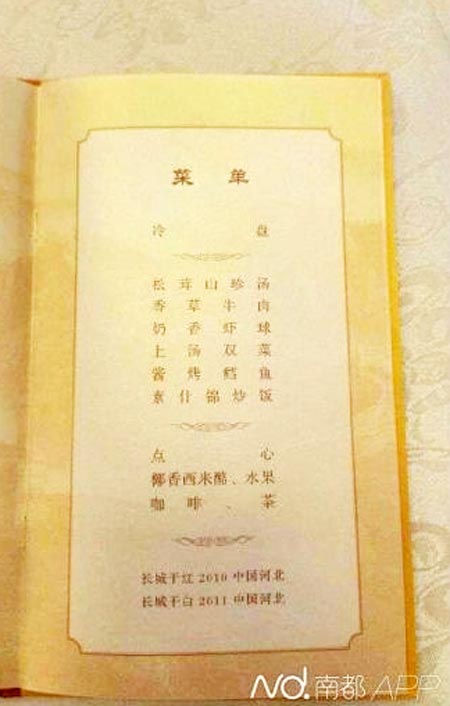 菜单
冷盘
松茸山珍汤
香草牛肉
奶香虾球
上汤双菜
酱烤鳕鱼
素什锦炒饭
点心
椰香西米酪、水果
咖啡、茶
长城干红 2010 中国河北
长城干白 2011 中国河北
Nd.南都APP